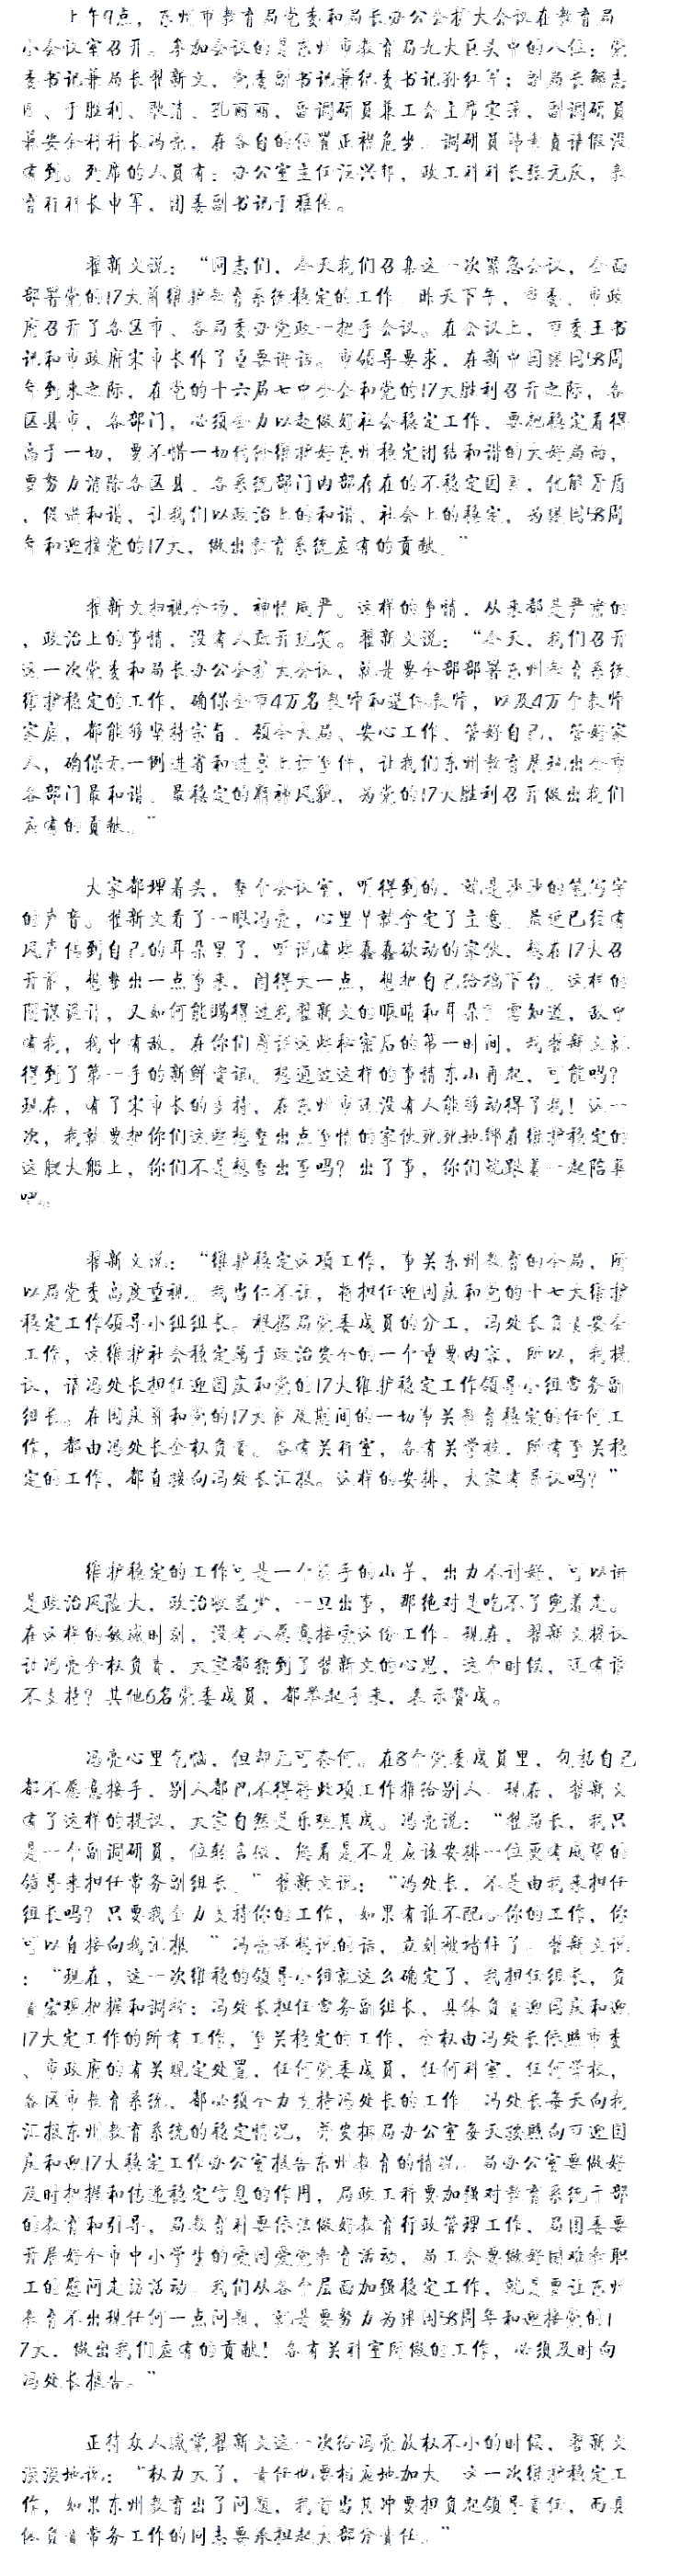 上午9点，东州市教育局党委和局长办公会扩大会议在教育局
小会议室召开。参加会议的是东州市教育局九大巨头中的八位：党
委书记兼局长翟新文，党委副书记兼纪委书记孙红军；副局长
于胜利、耿清、孔丽丽，副调研员兼工会主席宋萍，副调研员
兼安全科科长冯亮，在各自的位置正襟危坐。调研员请假没
有到。列席的人员有：办公室主任汪兴邦，政工科科长张元庆，教
育科科长申军，团委副书记于雅倩。
翟新文说：“同志们，今天我们召集这一次紧急会议，全面
部署党的17大前维护教育系统稳定的工作。昨天下午，市委、市政
府召开了各区市、各局委办党政一把手会议。在会议上，市委王书
记和市政府宋市长作了重要讲话。市领导要求，在新中国建国58周
年到来之际，在党的十六届七中全会和党的17大胜利召开之际，各
区县市，各部门，必须全力以赴做好社会稳定工作，要把稳定看得
高于一切，要不惜一切代价维护好东州稳定团结和谐的大好局面，
要努力消除各区县、各系统部门内部存在的不稳定因素，化解矛盾
，促进和谐，让我们以政治上的和谐、社会上的稳定，为建国58周
年和迎接党的17大，做出教育系统应有的贡献。”
翟新文扫视全场，神情威严。这样的事情，从来都是严肃的
，政治上的事情，没有人敢开玩笑。翟新文说：“今天，我们召开
这一次党委和局长办公会扩大会议，就是要全部部署东州教育系统
维护稳定的工作，确保全市4万名教师和退休教师，以及4万个教师
家庭，都能够坚持宗旨、顾全大局、安心工作、管好自己、管好家
人，确保无一例进省和进京上访事件，让我们东州教育展现出全市
各部门最和谐、最稳定的精神风貌，为党的17大胜利召开做出我们
应有的贡献。”
大家都埋着头，整个会议室，听得到的，就是沙沙的笔写字
的声音。翟新文看了一眼冯亮，心里早就拿定了主意。最近已经有
风声传到自己的耳朵里了，听说有些蠢蠢欲动的家伙，想在17大召
开前，想整出一点事来，闹得大一点，想把自己给搞下台。这样的
阴谋诡计，又如何能瞒得过我翟新文的眼睛和耳朵？要知道，敌中
有我，我中有敌，在你们商谈这些秘密后的第一时间，我翟新文就
得到了第一手的新鲜资讯。想通过这样的事情东山再起，可能吗？
现在，有了宋市长的支持，在东州市还没有人能够动得了我！这一
次，我就要把你们这些想整出点事情的家伙死死地绑在维护稳定的
这艘大船上，你们不是想整出事吗？出了事，你们就跟着一起陪葬
吧。
翟新文说：“维护稳定这项工作，事关东州教育的全局，所
以局党委高度重视。我当仁不让，将担任迎国庆和党的十七大维护
稳定工作领导小组组长。根据局党委成员的分工，冯处长负责安全
工作，这维护社会稳定属于政治安全的一个重要内容，所以，我提
议，请冯处长担任迎国庆和党的17大维护稳定工作领导小组常务副
组长。在国庆前和党的17大前及期间的一切事关教育稳定的任何工
作，都由冯处长全权负责。各有关科室，各有关学校，所有事关稳
定的工作，都直接向冯处长汇报。这样的安排，大家有异议吗？”
维护稳定的工作可是一个烫手的山芋，出力不讨好，可以讲
是政治风险大，政治收益少，一旦出事，那绝对是吃不了兜着走。
在这样的敏感时刻，没有人愿意接受这份工作。现在，翟新文提议
让冯亮全权负责，大家都猜到了翟新文的心思，这个时候，还有谁
不支持？其他6名党委成员，都举起手来，表示赞成。
冯亮心里气恼，但却无可奈何。在8个党委成员里，包括自己
都不愿意接手，别人都巴不得将此项工作推给别人。现在，翟新文
有了这样的提议，大家自然是乐观其成。冯亮说：“翟局长，我只
是一个副调研员，位轻言微，您看是不是应该安排一位更有威望的
领导来担任常务副组长。”翟新文说：“冯处长，不是由我来担任
组长吗？只要我全力支持你的工作，如果有谁不配合你的工作，你
可以直接向我汇报。”冯亮还想说的话，立刻被堵住了。翟新文说
：“现在，这一次维稳的领导小组就这么确定了，我担任组长，负
责宏观把握和调控；冯处长担任常务副组长，具体负责迎国庆和迎
17大定工作的所有工作，事关稳定的工作，全权由冯处长依照市委
、市政府的有关规定处置，任何党委成员，任何科室，任何学校，
各区市教育系统，都必须全力支持冯处长的工作。冯处长每天向我
汇报东州教育系统的稳定情况，并安排局办公室每天按照向市迎国
庆和迎17大稳定工作办公室报告东州教育的情况。局办公室要做好
及时把握和传递稳定信息的作用，局政工科要加强对教育系统干部
的教育和引导，局教育科要依法做好教育行政管理工作，局团委要
开展好全市中小学生的爱国爱党教育活动，局工会要做好困难教职
工的慰问走访活动。我们从各个层面加强稳定工作，就是要让东州
教育不出现任何一点问题，就是要努力为建国58周年和迎接党的1
7大，做出我们应有的贡献！各有关科室所做的工作，必须及时向
冯处长报告。”
正待众人感觉翟新文这一次给冯亮放权不小的时候，翟新文
淡淡地说：“权力大了，责任也要相应地加大。这一次维护稳定工
作，如果东州教育出了问题，我首当其冲要担负起领导责任，而具
体负责常务工作的同志要承担起大部分责任。”